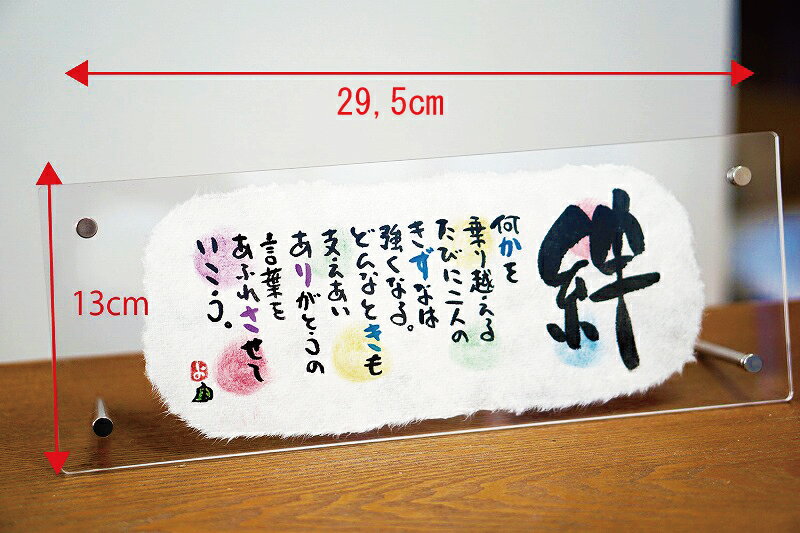 29,5cm
13cm
絆
何かを
乗り越える
たびに二人の
きずなは
強くなる。
どんなときも
支えあい
ありがとうの
言葉を
あふれさせて
いこう。